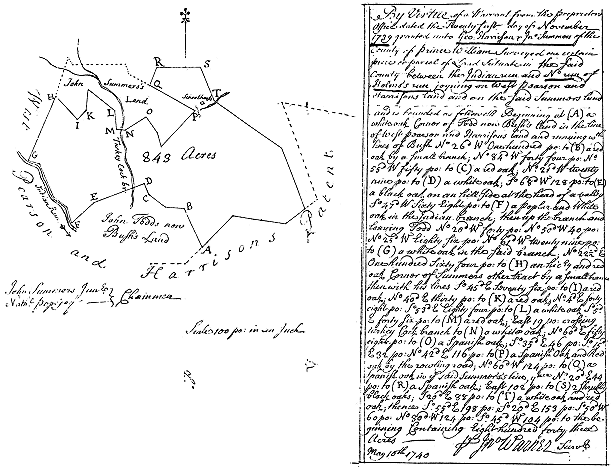 John Summers's Land
843 Acres
John Todds now Bush's Land
West Pearson and Harrisons Patent
Turkey Cock br
R S
Q
T
P
O
N
M
L
K
I
H
G
E
D
C
B
A
John Summers Junr &
Chainmen
Scale 100 po: in an Inch
By Virtue of a Warrant from the Proprietors
Office dated the Twenty first day of November
1739 granted unto Geo. Harrison & Jno Summers of the
County of Prince William Surveyed one certain
piece or parcel of Land Situate in the said
County between the Indian run and No run of
Holmes run joyning on West Pearson and
Harrisons Land and on the said Summers land
and is bounded as followeth Beginning at (A) a
white oak Corner of Todd now Bush's Land in the line
of West Pearson and Harrisons land and running with
lines of Bush No 26 Wt One hundred po: to (B) a red
oak by a small branch, No 84 Wt forty four po: No
55 Wt fifty po: to (C) a red oak, No 25 Wt twenty
nine po: to (D) a white oak, So 68 Wt 128 po: to (E)
a black oak on an hill side at the head of a valley
So 45 Wt Sixty Eight po: to (F) a poplar and white
oak in the Indian branch, then up the branch and
leaving Todd No 20 Wt forty po: No 50 Wt 40 po:
No 25 Wt Eighty six po: No 62 Wt twenty nine po:
to (G) a white oak in the said branch, No 22 E
One hundred Sixty four po: to (H) an hic'ry and red
oak Corner of Summers other tract by a small branch
then with his lines So 45 E Seventy six po: to (I) a red
oak, No 40 E thirty po: to (K) a red oak, No 4 E forty
eight po: So 55 E Eighty four po: to (L) a white oak So 5
E forty six po: to (M) a red oak, East 19 po: crossing
turkey Cock branch to (N) a white oak, No 60 E fifty
eight po: to (O) a Spanish oak, So 35 E 46 po: So 15
E 32 po: No 42 E 116 po: to (P) a Spanish Oak and red
oak by the rowling road, No 60 Wt 124 po: to (Q) a
Spanish oak in said Summers's line, No 20 E 44
po: to (R) a Spanish oak, East 102 po: to (S) 2 small
black oaks, So 20 E 88 po: to (T) a white oak and red
oak, thence So 55 E 198 po: So 20 E 153 po: So 50 Wt
60 po: No 80 Wt 124 po: So 45 Wt 104 po: to the be-
ginning Containing Eight hundred forty three
Acres
Jno Warner Survr
May 10th 1740